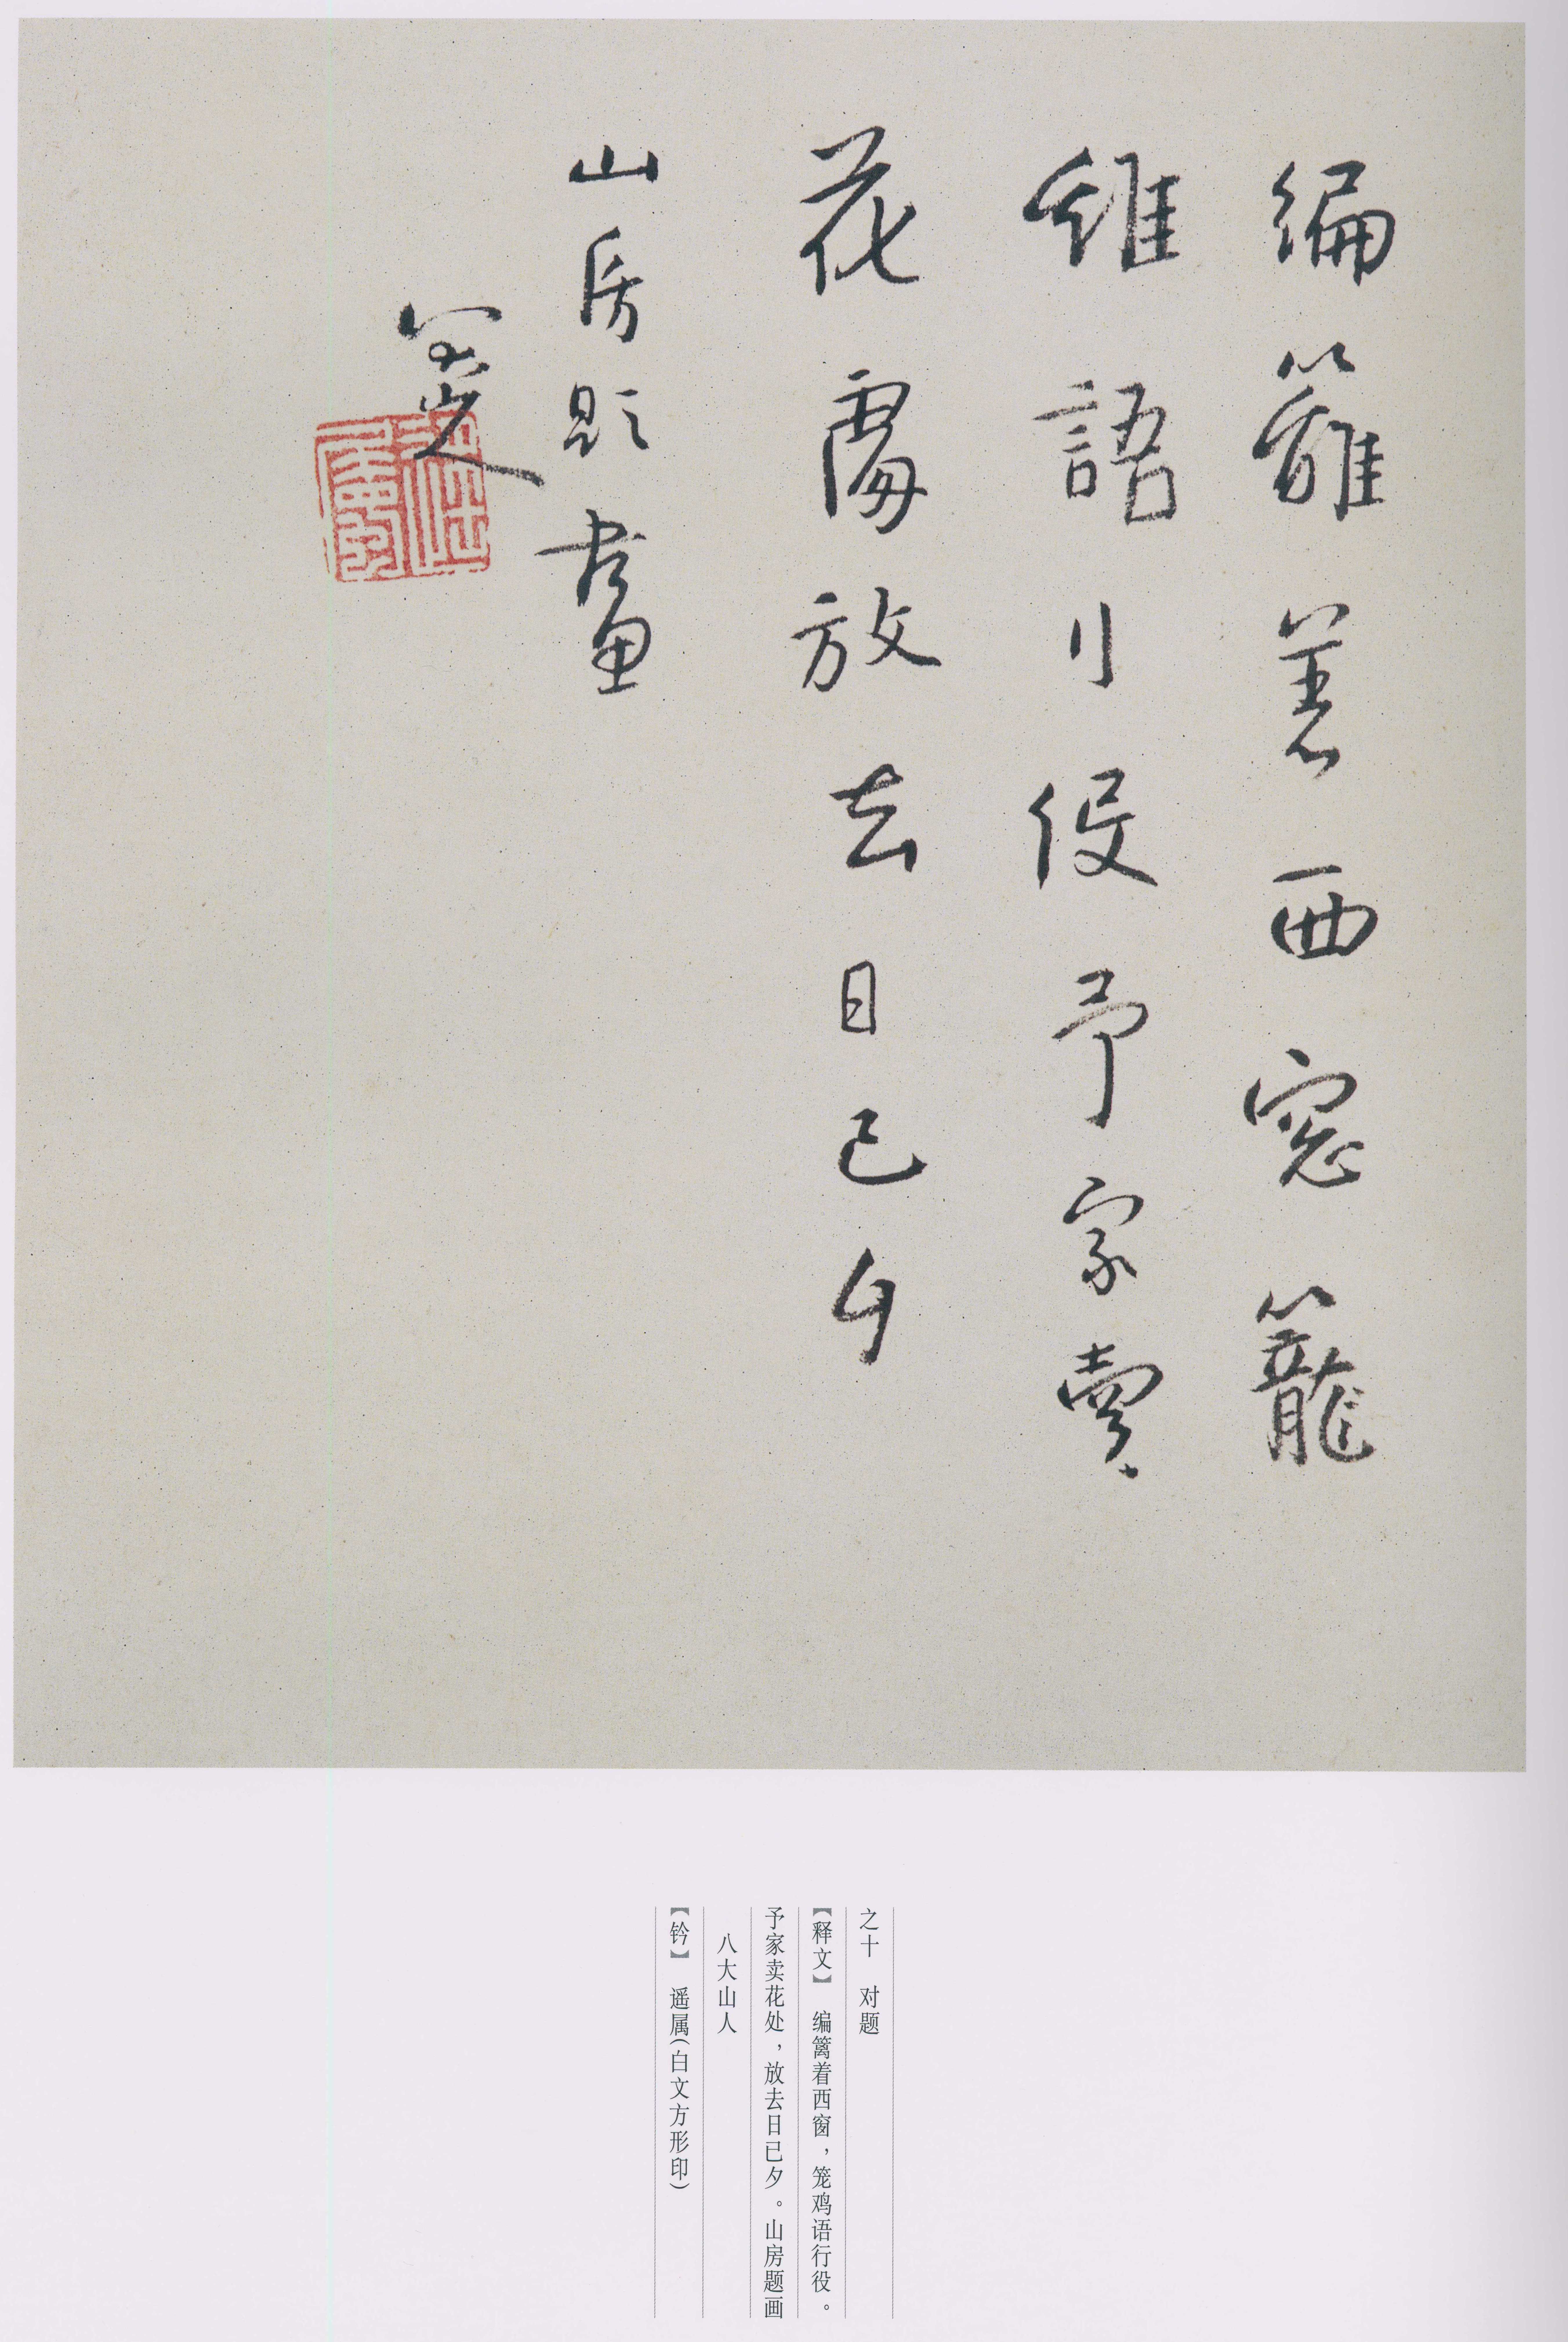 編籬著西窓籠
雞語行役予家賣
花處放去日已夕
山房題畫
八大山人
之十　对题
【释文】　编篱着西窗，笼鸡语行役。
予家卖花处，放去日已夕。山房题画
八大山人
【钤】　遥属(白文方形印)